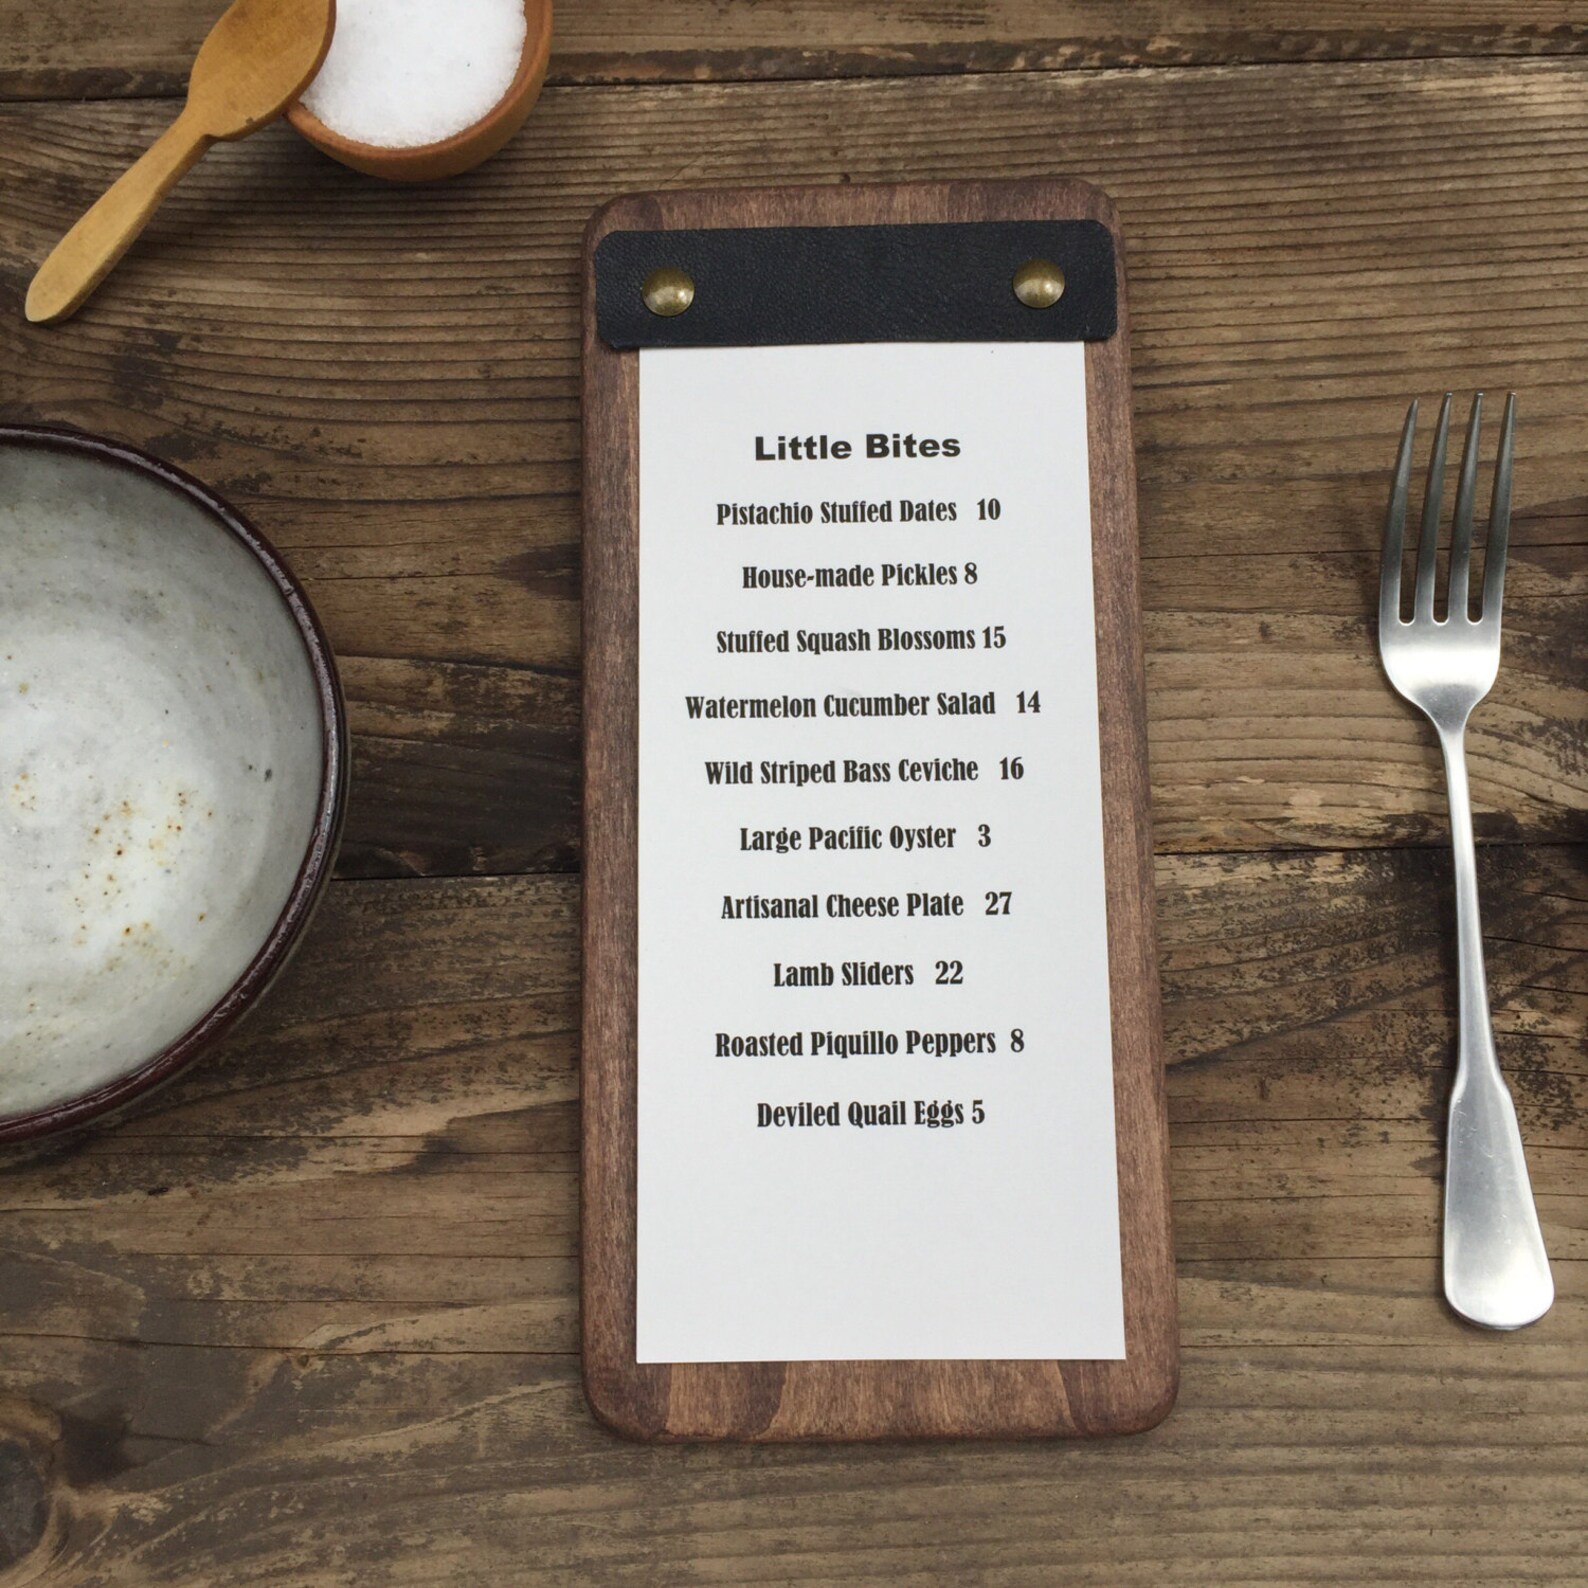 Little Bites
Pistachio Stuffed Dates 10
House-made Pickles 8
Stuffed Squash Blossoms 15
Watermelon Cucumber Salad 14
Wild Striped Bass Ceviche 16
Large Pacific Oyster 3
Artisanal Cheese Plate 27
Lamb Sliders 22
Roasted Piquillo Peppers 8
Deviled Quail Eggs 5